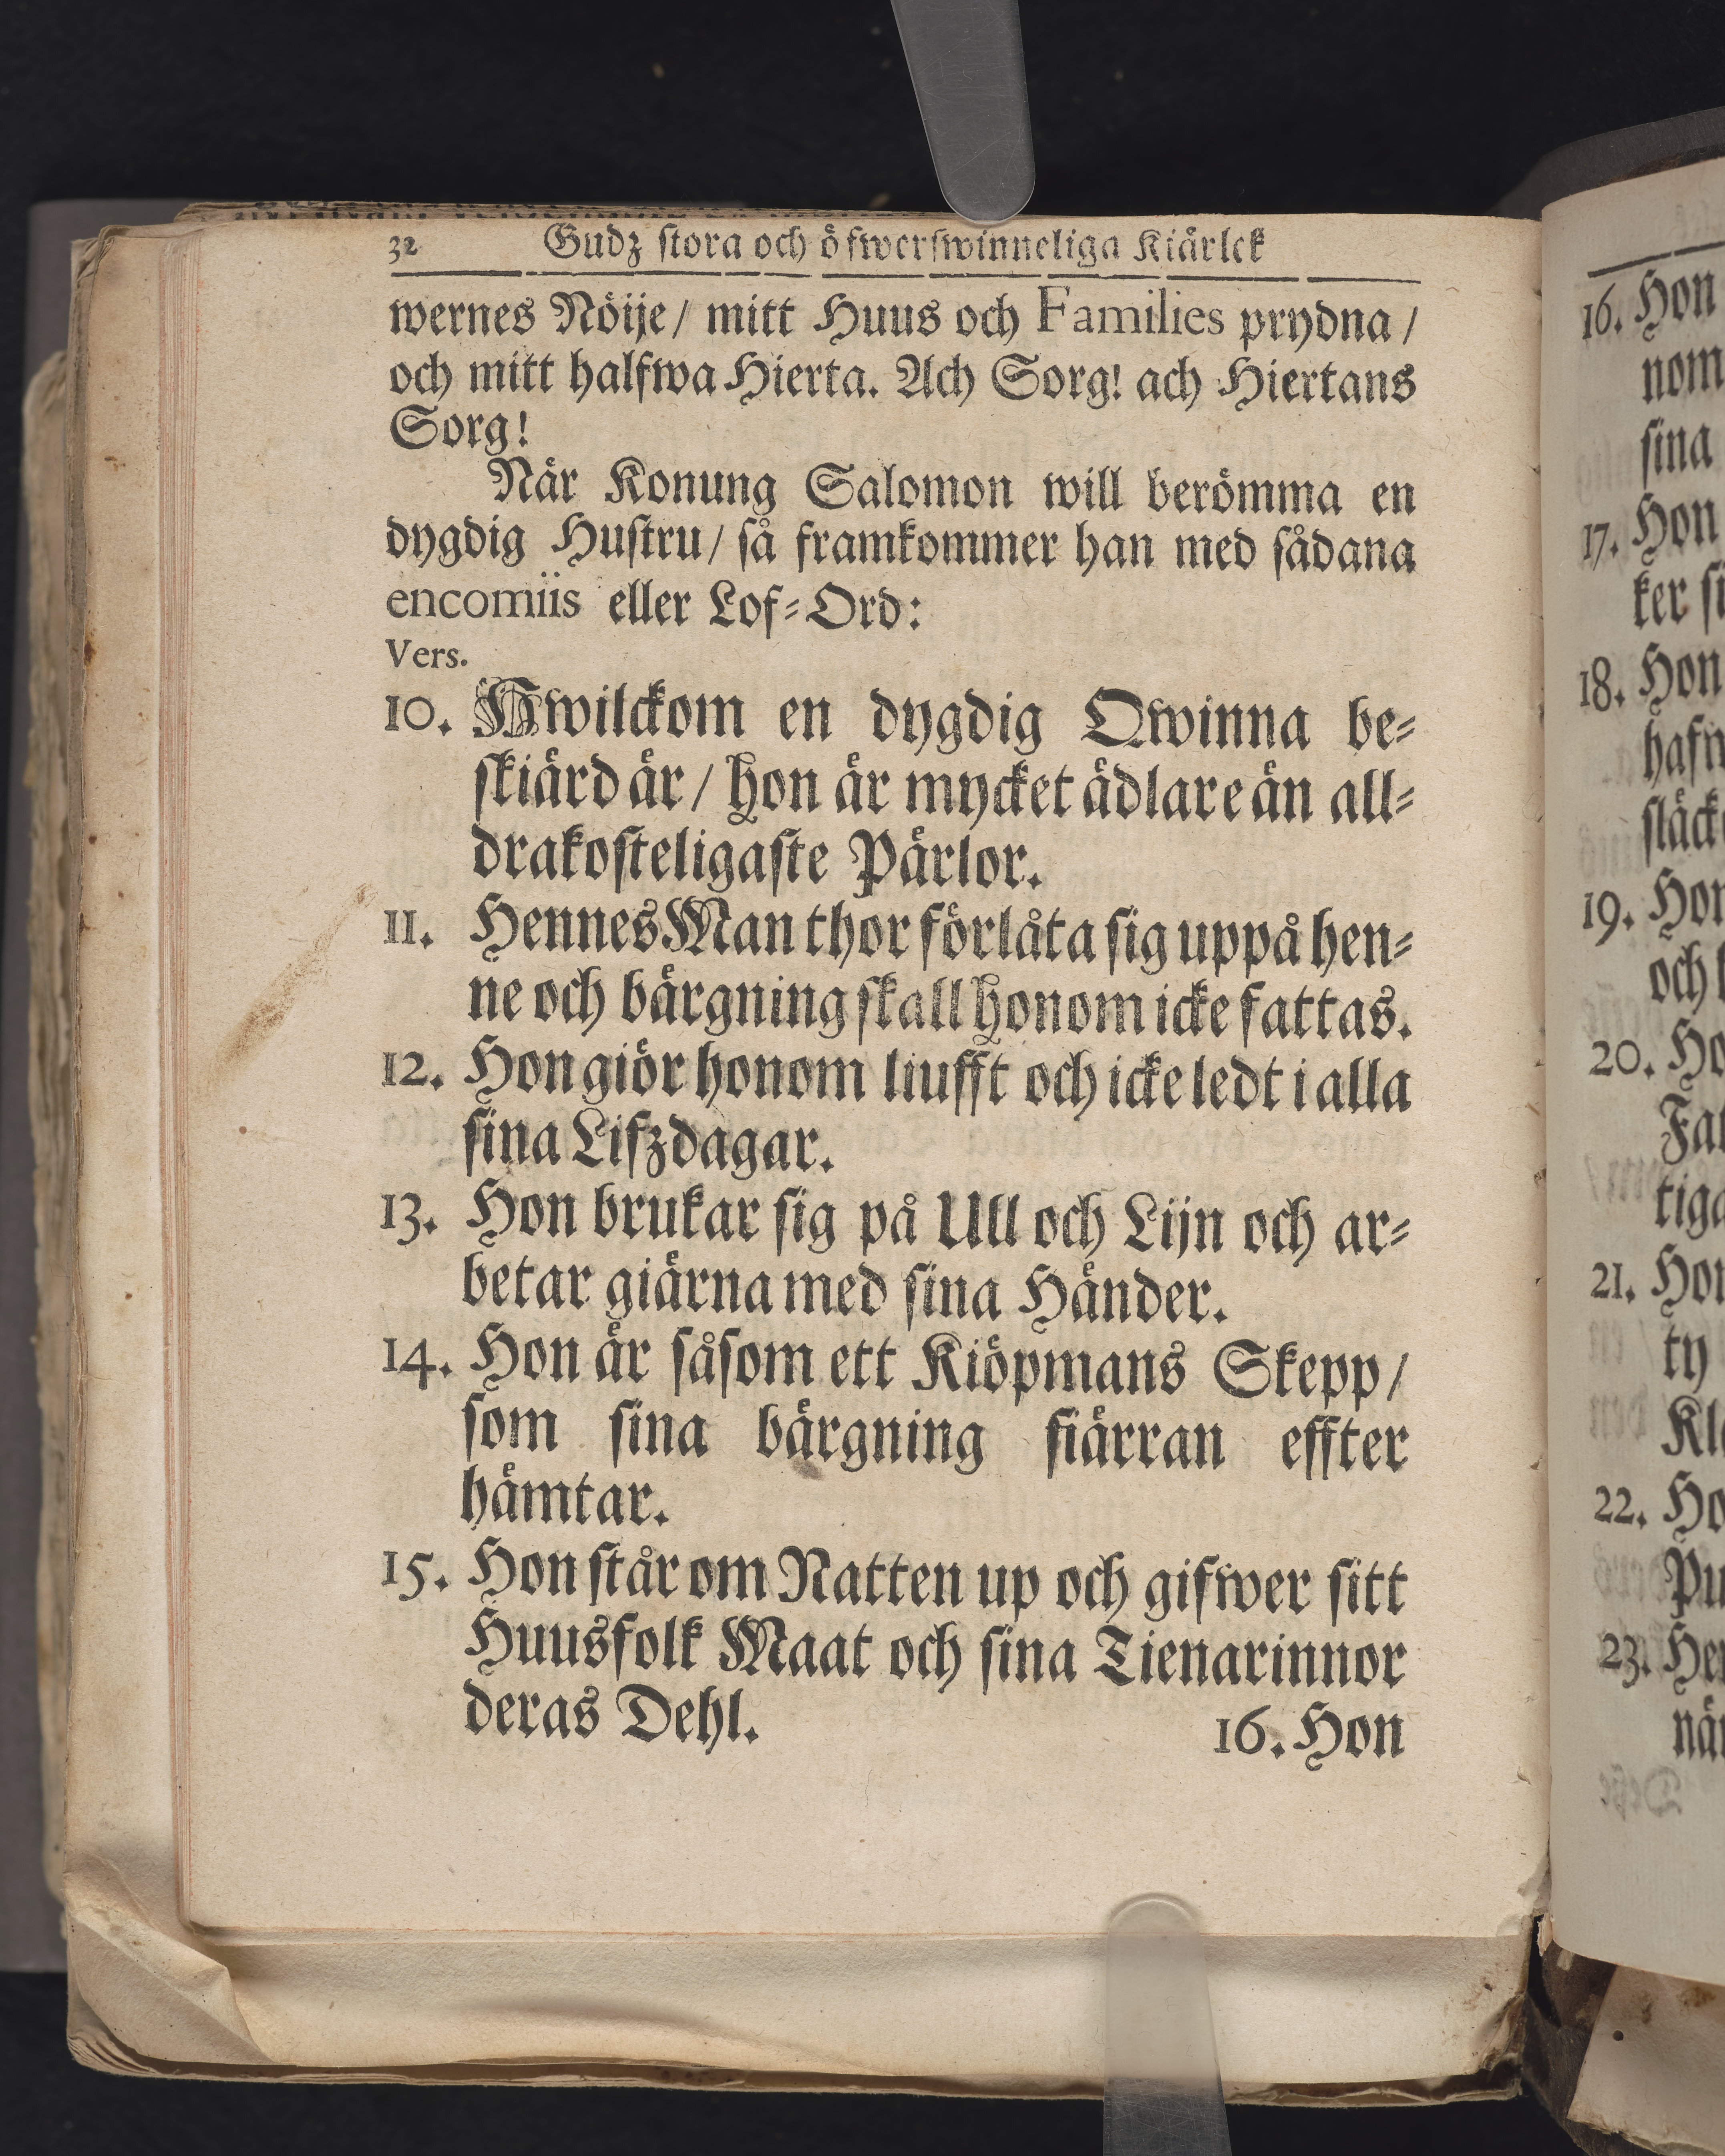 32 Gudz stora och öfwerswinneliga Kiärlek
wernes Nöije / mitt Huus och Families prydna /
och mitt halfwa Hierta. Ach Sorg! ach Hiertans
Sorg!
När Konung Salomon will berömma en
dygdig Hustru / så framkommer han med sådana
encomiis eller Lof-Ord:
Vers.
10. Hwilckom en dygdig Qwinna be-
skiärd är / hon är mycket ädlare än all-
drakosteligaste Pärlor.
11. Hennes Man thor förlåta sig uppå hen-
ne och bärgning skall honom icke fattas.
12. Hon giör honom liufft och icke ledt i alla
sina Lifzdagar.
13. Hon brukar sig på Ull och Lijn och ar-
betar giärna med sina Händer.
14. Hon är såsom ett Kiöpmans Skepp /
som sina bärgning fiärran effter
hämtar.
15. Hon står om Natten up och gifwer sitt
Huusfolk Maat och sina Tienarinnor
deras Dehl.
16. Hon
16. Hon
nom
sina
17. Hon
ker
18. Hon
19.
och
20.
21.
ty
22.
23.